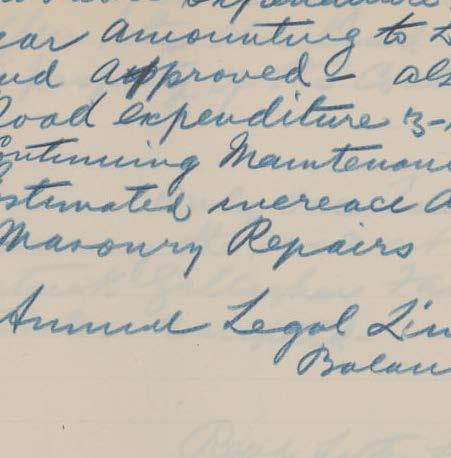 expenditure
ear Amounting to
and Approved - als
Road expenditure 3-
Continuing Maintenanc
Estimated increace
Masonry Repairs
Annual Legal Lim
Balan